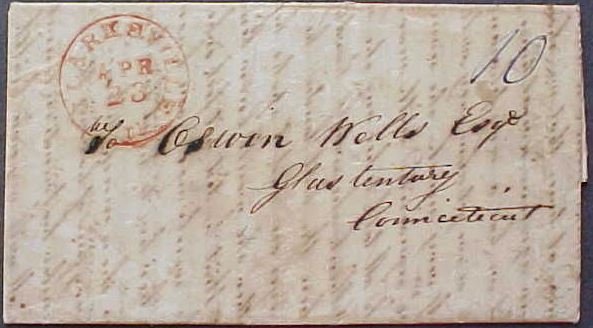 CLARKSVILLE
APR
23
10
Oswin Wells Esqr
Glastenbury
Connecticut